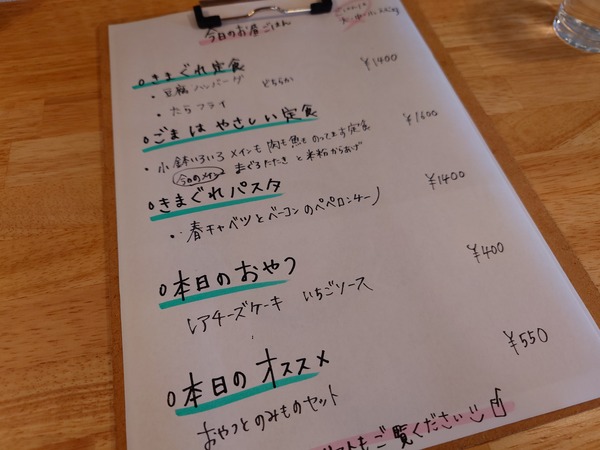 今日のお昼ごはん
きまぐれ定食 ¥1400
・豆腐ハンバーグ どちらか
・たらフライ
ごまはやさしい定食 ¥1600
・小鉢いろいろ メインも肉も魚ものってます定食
今日のメイン まぐろたたきと米粉からあげ
きまぐれパスタ ¥1400
・春キャベツとベーコンのペペロンチーノ
本日のおやつ ¥400
レアチーズケーキ いちごソース
本日のオススメ ¥550
おやつとのみものセット
もご覧ください